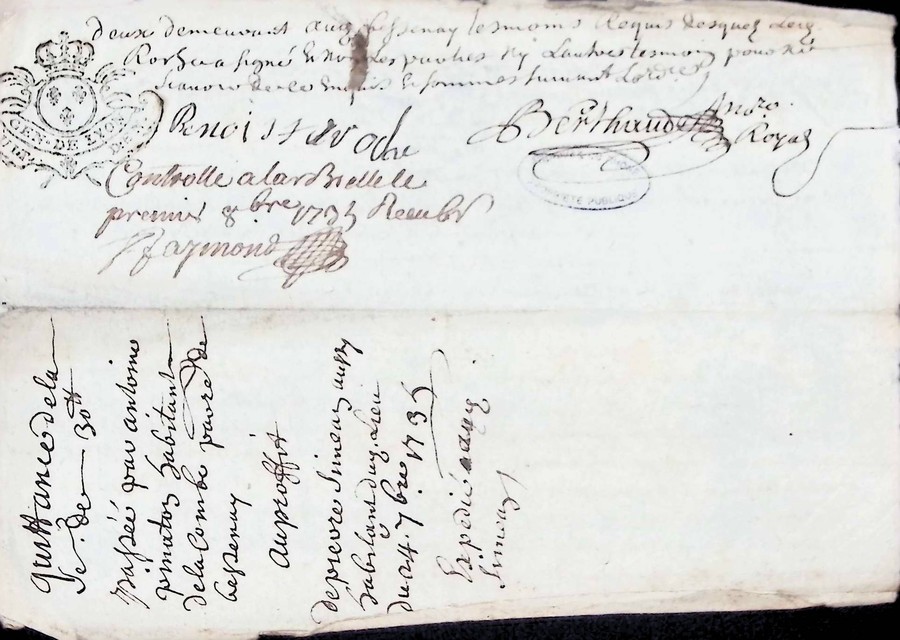 deux demeurant aud Bessenay tesmoins Requis desquels led
Roche a signé et non les parties ny l'autres tesmoin pour ne
scavoir de ce enquis et sommes suivant l'ordce
GEN. DE LYON
Benoist Roche
Berthaud No.re Royal
Controlle a larBrelle le
premier 8bre 1735 Receu
Raymond
quittance de la
So. de 30tt
passée par antoine
pinaton habitant
de la Combe parr de
bessenay
au proffit
de pierre Simean aussy
habitant dud. lieu
du 4. 7bre 1735
Expedié aud
Simean